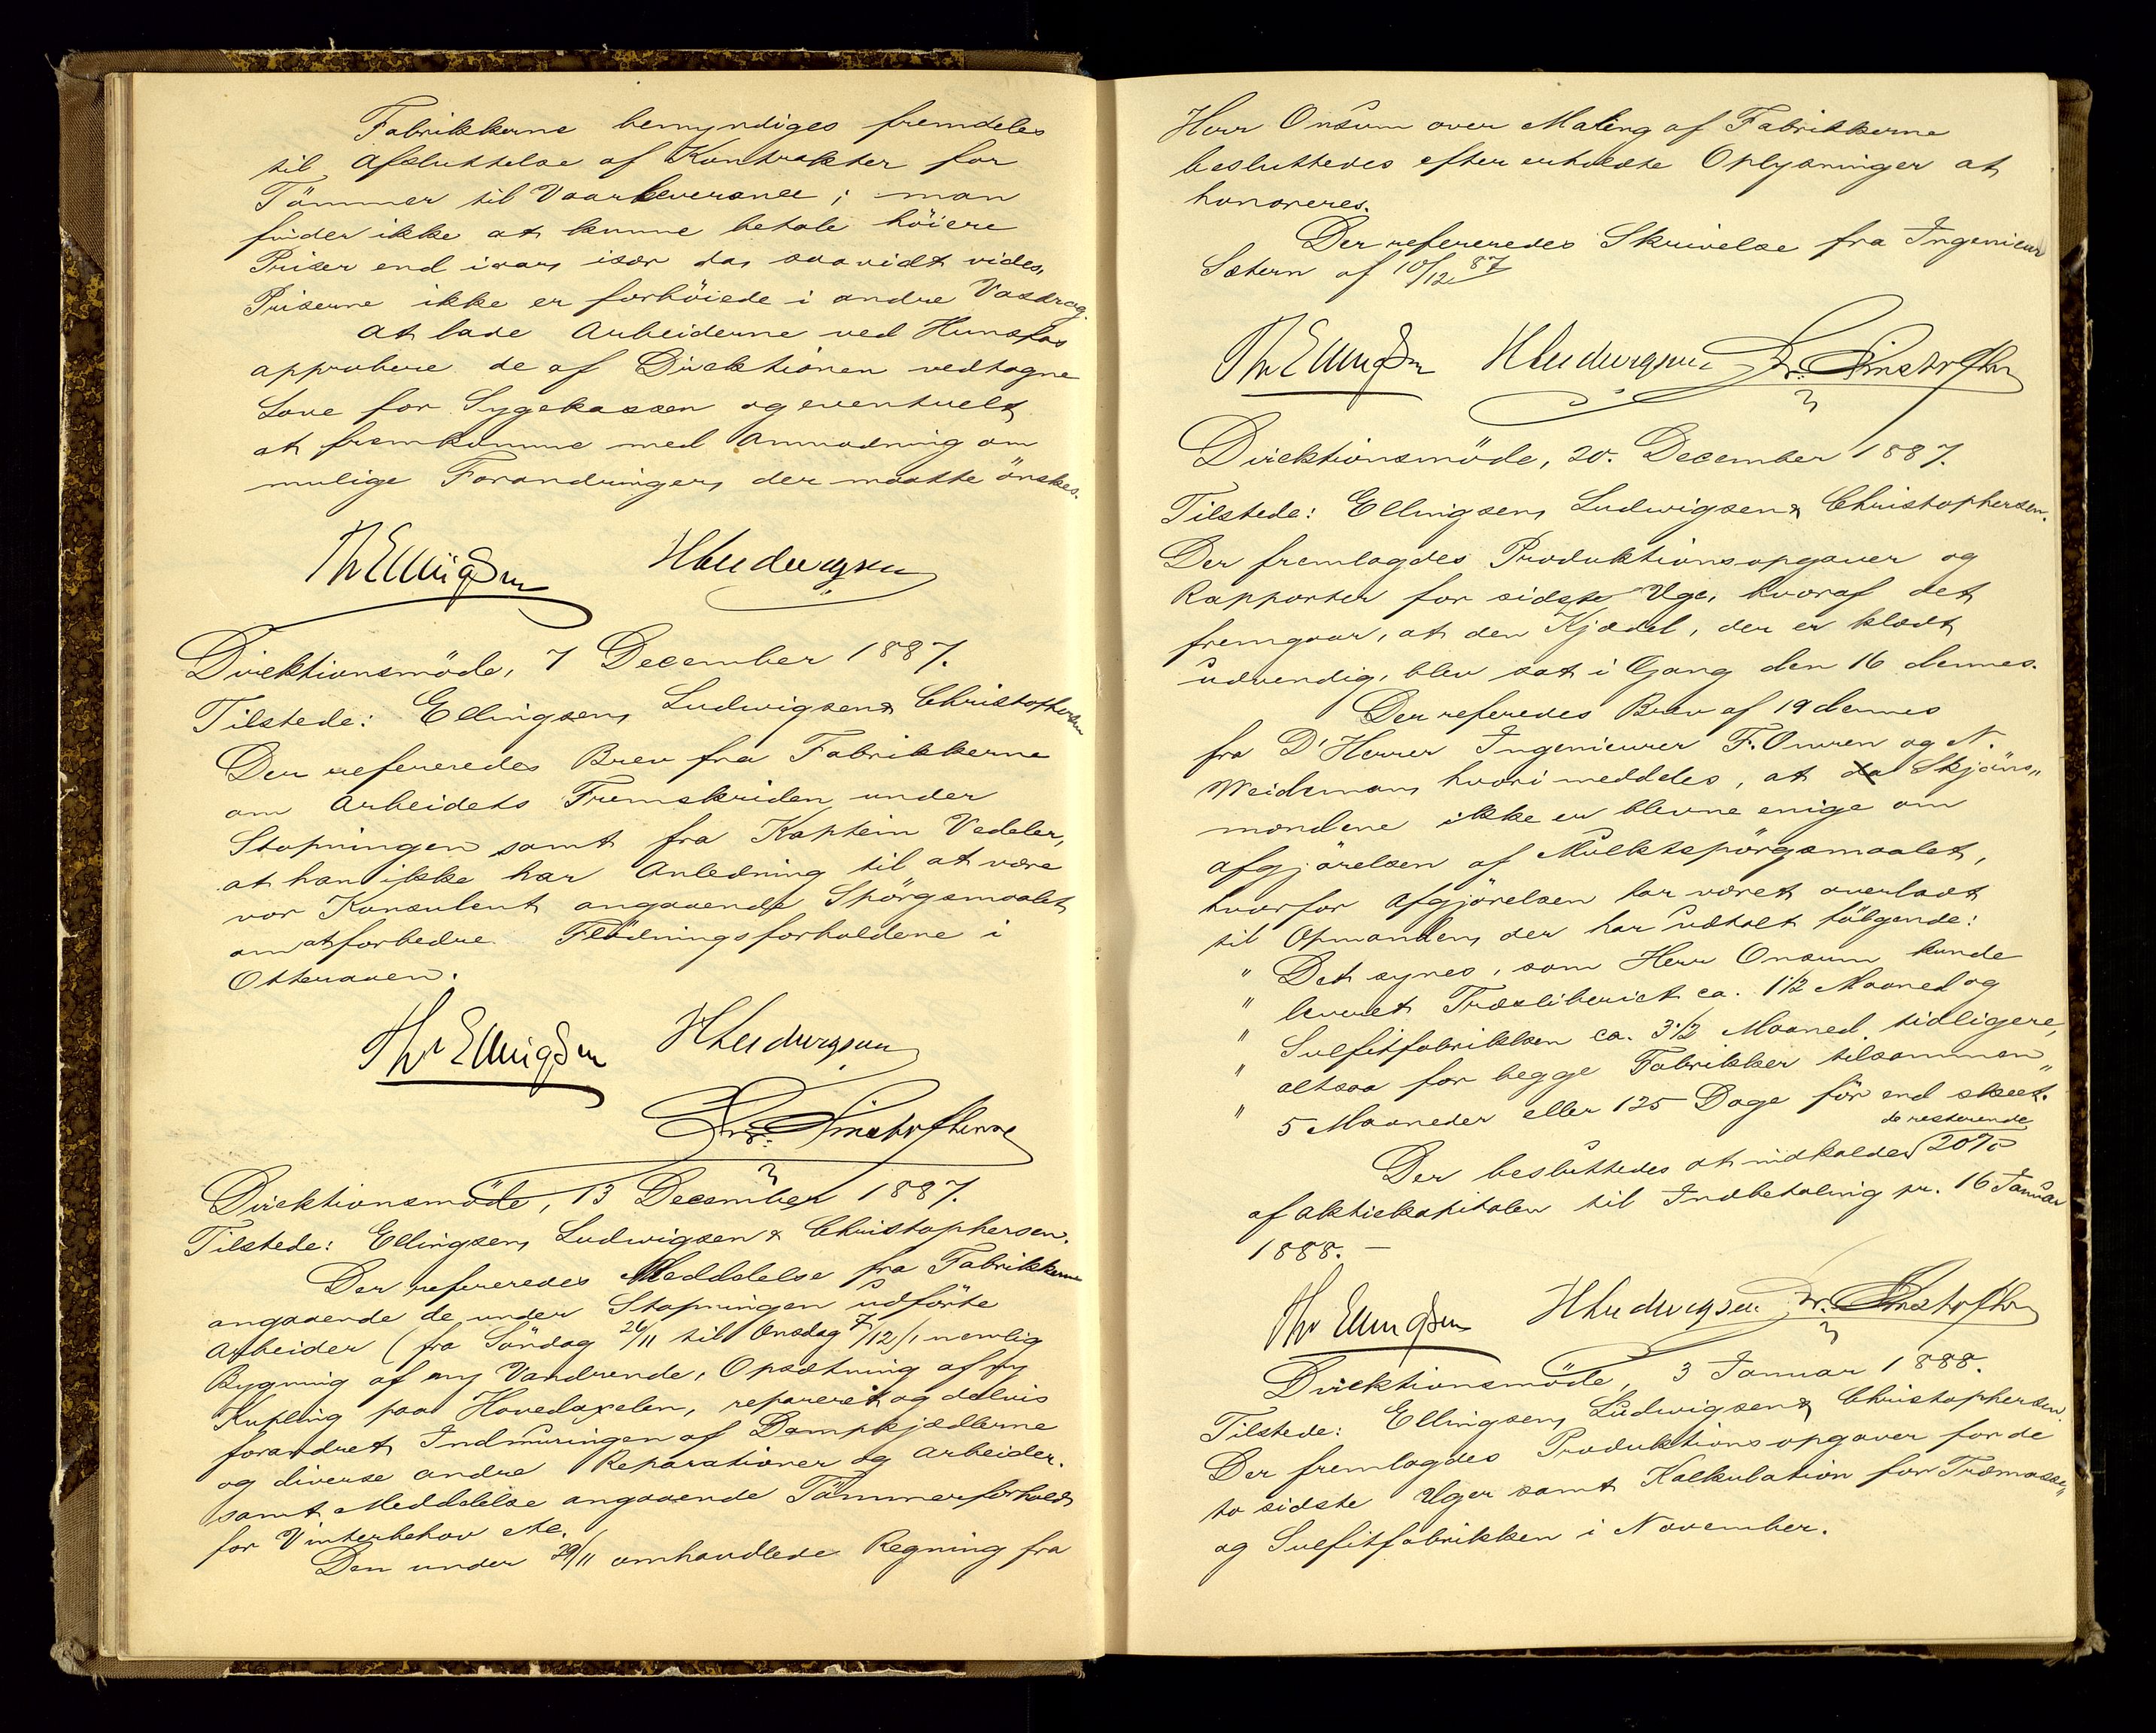 Fabrikkerne bemyndiges fremdeles
til Afsluttelse af Kontrakter for
Tömmer til Vaarleverance; man
finder ikke at kunne betale höiere
Priser end ivaar, især da, saavidt vides,
Priserne ikke er forhöiede i andre Vasdrag.
At lade Arbeiderne ved Hunsfos
approbere de af Direktionen vedtagne
Love for Sygekassen og eventuelt
at fremkomme med Anmodning om
mulige Forandringer, der maatte önskes.
Th Ellingsen HLudwigsen
Direktionsmöde, 7 December 1887.
Tilstede: Ellingsen, Ludwigsen & Christophersen
Der refereredes Brev fra Fabrikkerne
om Arbeidets Fremskriden under
Stopningen samt fra Kaptein Vedeler,
at han ikke har Anledning til at være
vor Konsulent angaaende Spörgsmaalet
om at forbedre Flödningsforholdene i
Otteraaen.
Th Ellingsen HLudwigsen
Chr. Christophersen
Direktionsmöde, 13 December 1887.
Tilstede: Ellingsen, Ludwigsen & Christophersen.
Der refereredes Meddelelse fra Fabrikkerne
angaaende de under Stopningen udförte
Arbeider (fra Söndag 26/11 til Onsdag 7/12), nemlig
Bygning af ny Vandrende, Opsætning af ny
Kupling paa Hovedaxelen, reparert og delvis
forandret Indmuringen af Dampkjædlerne
og diverse andre Reparationer og Arbeider.
samt Meddelelse angaaende Tömmerforhold
for Vinterbehov etc.
Den under 29/11 omhandlede Regning fra
Herr Onsum over Maling af Fabrikkerne
besluttedes efter erholdte Oplysninger at
honoreres.
Der refereredes Skrivelse fra Ingenieur
Sætern af 10/12 87
Th Ellingsen HLudwigsen Chr. Christophersen
Direktionsmöde, 20. December 1887.
Tilstede: Ellingsen, Ludwigsen & Christophersen.
Der fremlagdes Produktionsopgaver og
Rapporter for sidste Uge, hvoraf det
fremgaar, at den Kjædel, der er klædt
udvendig, blev sat i Gang den 16 dennes.
Der referedes Brev af 19 dennes
fra D'Herrer Ingenieurer F. Onren og N.
Weidemann, hvori meddeles, at da Skjöns„
mændene ikke er blevne enige om
afgjörelsen af Mulktspörgsmaalet,
hvorfor Afgjörelsen har været overladt
til Opmanden, der har udtalt fölgende:
" Det synes, som Herr Onsum kunde
" leveret Træsliberiet ca. 1 1/2 Maaned og
" Sulfitfabrikken ca. 3 1/2 Maaned tidligere,
" altsaa for begge Fabrikker tilsammen „
" 5 Maaneder eller 125 Dage för end skeet.
de resterende
Der besluttedes at indkalde 20%
af aktiekapitalen til Indbetaling pr. 16 Januar
1888. —
Th Ellingsen HLudwigsen Chr. Christophersen
Direktionsmöde, 3 Januar 1888.
Tilstede: Ellingsen, Ludwigsen & Christophersen.
Der fremlagdes Produktionsopgaver for de
to sidste Uger samt Kalkulation for Træmasse„
og Sulfitfabrikken i November.